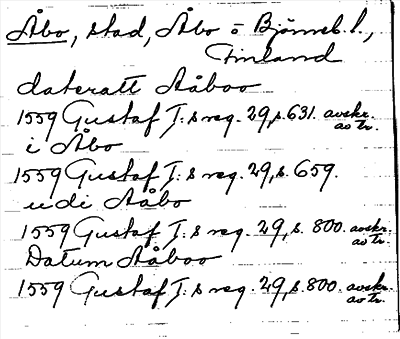 Åbo, stad, Åbo o Björneb. l.,
Finland
dateratt Aåboo
1559 Gustaf I: s reg. 29, s. 631. avskr.
av tr.
i Åbo
1559 Gustaf I: s reg. 29, s. 659.
udi Aåbo
1559 Gustaf I: s reg. 29, s. 800. avskr.
av tr.
Datum Aåboo
1559 Gustaf I: s reg. 29, s. 800. avskr.
av tr.